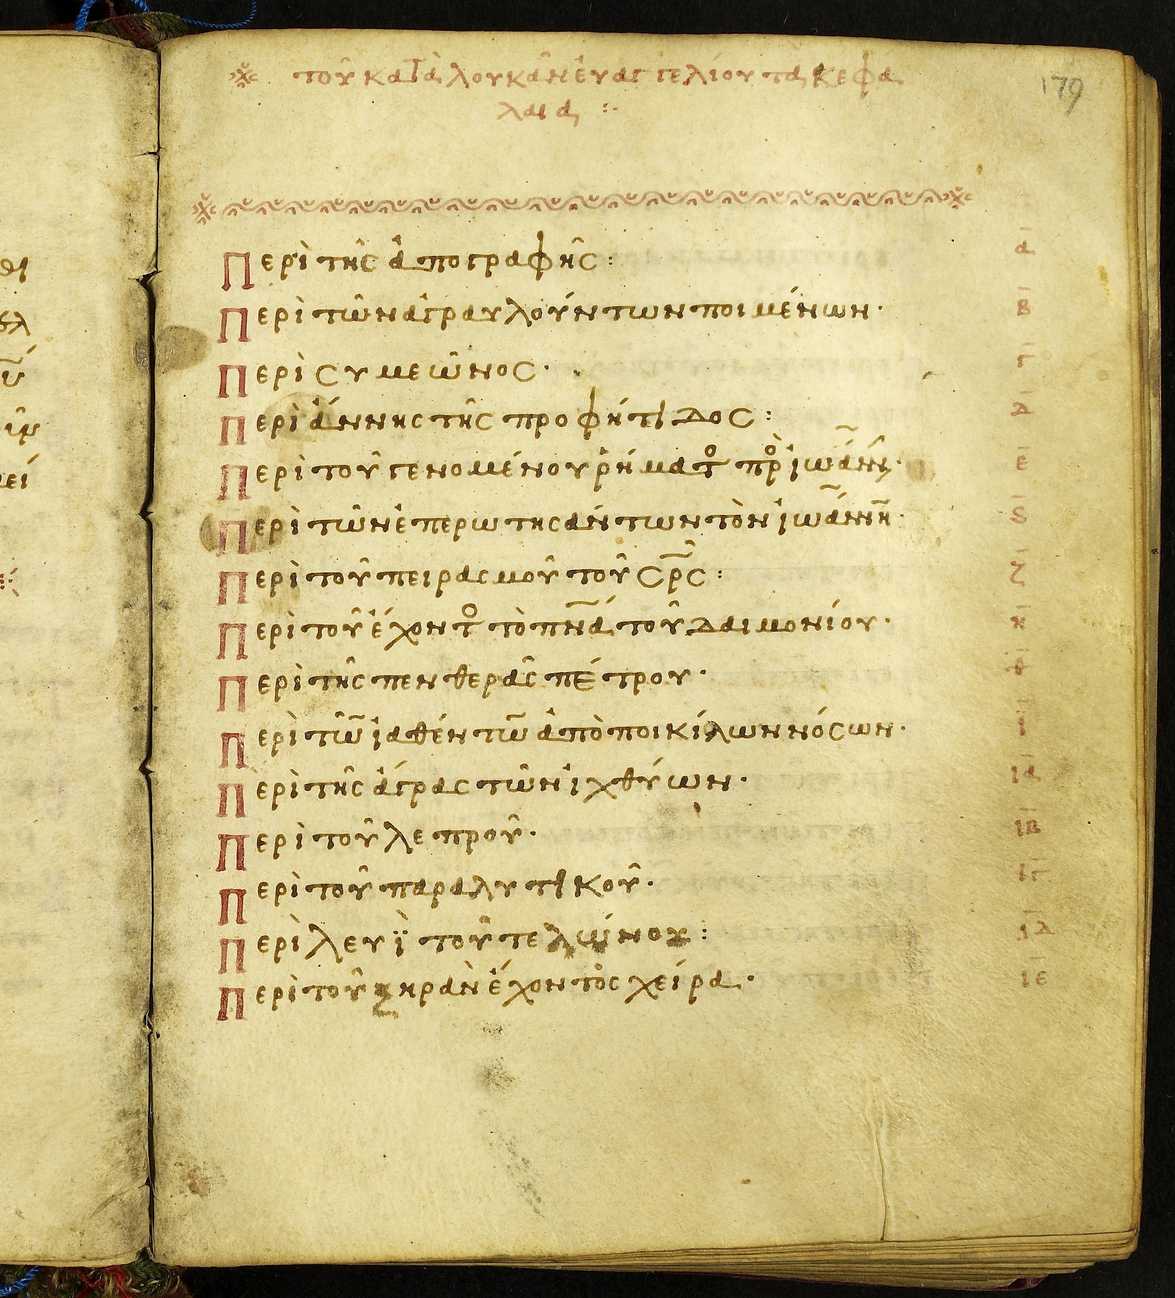 ※ τοῦ κατὰ λουκᾶν ἐυαγγελίου τὰ κεφά
λαια :·
179
Περὶ τῆς ἀπογραφῆς : α
Περὶ τῶν ἀγραυλούντων ποιμένων · β
Περὶ συμεῶνος · γ
Περὶ ἄννης τῆς προφήτιδος : δ
Περὶ τοῦ γενομένου ῥήματο πρὸ ἰωάνν · ε
Περὶ τῶν ἐπερωτησάντων τὸν ἰωάννη · ς
Περὶ τοῦ πειρασμοῦ τοῦ σρς : ζ
Περὶ τοῦ ἔχοντο τὸ πνα τοῦ δαιμονίου · η
Περὶ τῆς πενθερᾶς πέτρου · θ
Περὶ τῶ ἰαθέντω ἀπὸ ποικίλων νόσων · ι
Περὶ τῆς ἄγρας τῶν ἰχθύων · ια
Περὶ τοῦ λεπροῦ · ιβ
Περὶ τοῦ παραλυτικοῦ · ιγ
Περὶ λευϊ τοῦ τελώνου : ιδ
Περὶ τοῦ ξηρὰν ἔχοντος χείρα · ιε